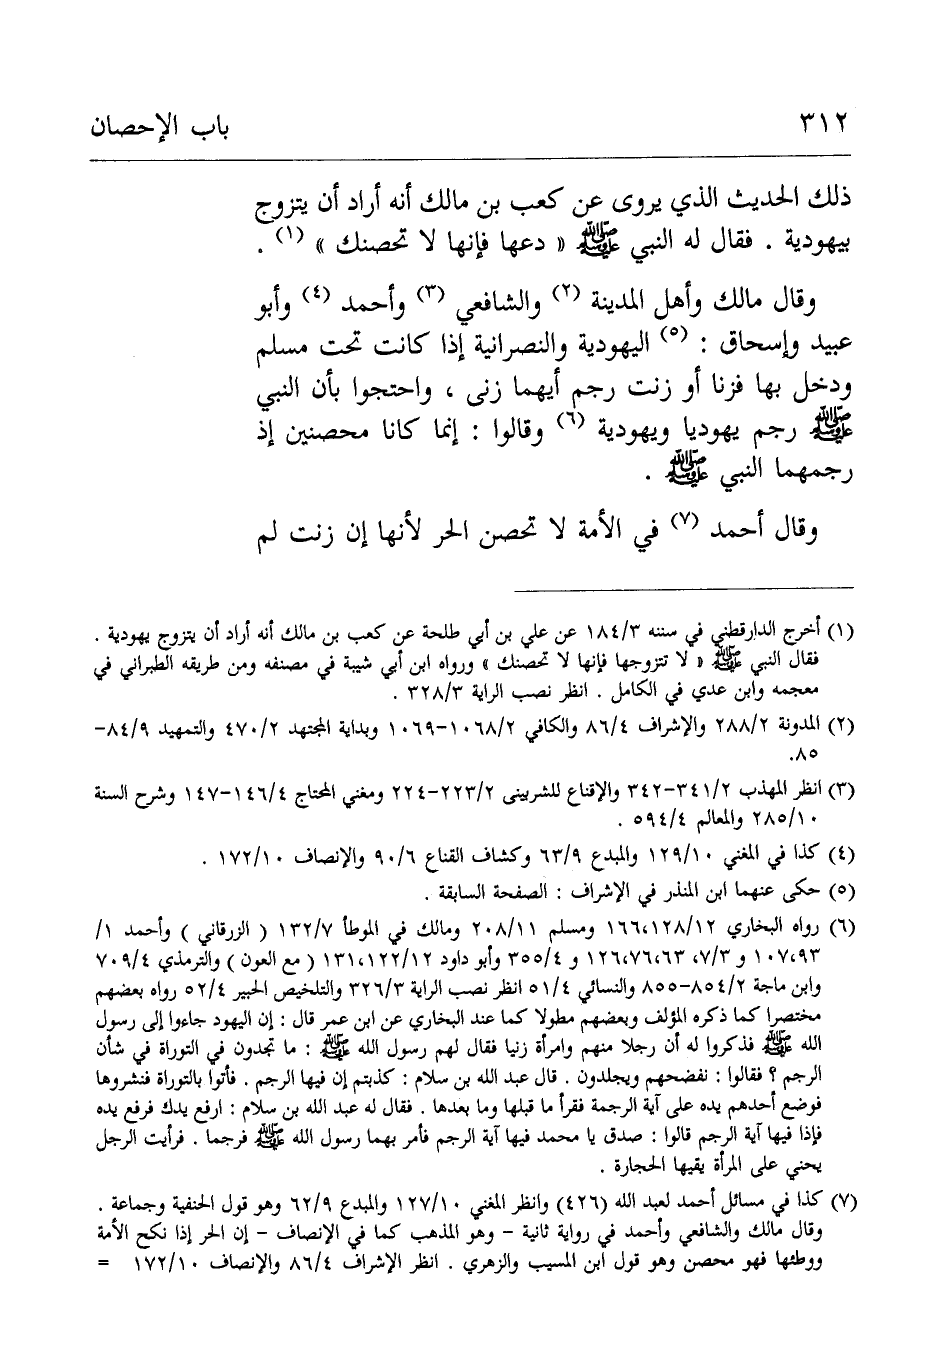 ٣١٢
باب الإحصان
ذلك الحديث الذي يروى عن كعب بن مالك أنه أراد أن يتزوج
بيهودية . فقال له النبي ﷺ « دعها فإنها لا تحصنك » (١) .
وقال مالك وأهل المدينة (٢) والشافعي (٣) وأحمد (٤) وأبو
عبيد وإسحاق : (٥) اليهودية والنصرانية إذا كانت تحت مسلم
ودخل بها فزنا أو زنت رجم أيهما زنى ، واحتجوا بأن النبي
ﷺ رجم يهوديا ويهودية (٦) وقالوا : إنما كانا محصنين إذ
رجمهما النبي ﷺ .
وقال أحمد (٧) في الأمة لا تحصن الحر لأنها إن زنت لم
(١) أخرج الدارقطني في سننه ١٨٤/٣ عن علي بن أبي طلحة عن كعب بن مالك أنه أراد أن يتزوج يهودية .
فقال النبي ﷺ « لا تتزوجها فإنها لا تحصنك » ورواه ابن أبي شيبة في مصنفه ومن طريقه الطبراني في
معجمه وابن عدي في الكامل . انظر نصب الراية ٣٢٨/٣ .
(٢) المدونة ٢٨٨/٢ والإشراف ٨٦/٤ والكافي ١٠٦٨/٢-١٠٦٩ وبداية المجتهد ٤٧٠/٢ والتمهيد ٨٤/٩-
٨٥.
(٣) انظر المهذب ٣٤١/٢-٣٤٢ والإقناع للشربينى ٢٢٣/٢-٢٢٤ ومغني المحتاج ١٤٦/٤-١٤٧ وشرح السنة
٢٨٥/١٠ والمعالم ٥٩٤/٤ .
(٤) كذا في المغني ١٢٩/١٠ والمبدع ٦٣/٩ وكشاف القناع ٩٠/٦ والإنصاف ١٧٢/١٠ .
(٥) حكى عنهما ابن المنذر في الإشراف : الصفحة السابقة .
(٦) رواه البخاري ١٦٦،١٢٨/١٢ ومسلم ٢٠٨/١١ ومالك في الموطأ ١٣٢/٧ ( الزرقاني ) وأحمد ١/
١٠٧،٩٣ و ٧/٣، ١٢٦،٧٦،٦٣ و ٣٥٥/٤ وأبو داود ١٣١،١٢٢/١٢ ( مع العون ) والترمذي ٧٠٩/٤
وابن ماجة ٨٥٤/٢-٨٥٥ والنسائي ٥١/٤ انظر نصب الراية ٣٢٦/٣ والتلخيص الحبير ٥٢/٤ رواه بعضهم
مختصرا كما ذكره المؤلف وبعضهم مطولا كما عند البخاري عن ابن عمر قال : إن اليهود جاءوا إلى رسول
الله ﷺ فذكروا له أن رجلا منهم وامرأة زنيا فقال لهم رسول الله ﷺ : ما تجدون في التوراة في شأن
الرجم ؟ فقالوا : نفضحهم ويجلدون . قال عبد الله بن سلام : كذبتم إن فيها الرجم . فأتوا بالتوراة فنشروها
فوضع أحدهم يده على آية الرجمة فقرأ ما قبلها وما بعدها . فقال له عبد الله بن سلام : ارفع يدك فرفع يده
فإذا فيها آية الرجم قالوا : صدق يا محمد فيها آية الرجم فأمر بهما رسول الله ﷺ فرجما . فرأيت الرجل
يحني على المرأة يقيها الحجارة .
(٧) كذا في مسائل أحمد لعبد الله (٤٢٦) وانظر المغني ١٢٧/١٠ والمبدع ٦٢/٩ وهو قول الحنفية وجماعة .
وقال مالك والشافعي وأحمد في رواية ثانية - وهو المذهب كما في الإنصاف - إن الحر إذا نكح الأمة
ووطئها فهو محصن وهو قول ابن المسيب والزهري . انظر الإشراف ٨٦/٤ والإنصاف ١٧٢/١٠ =